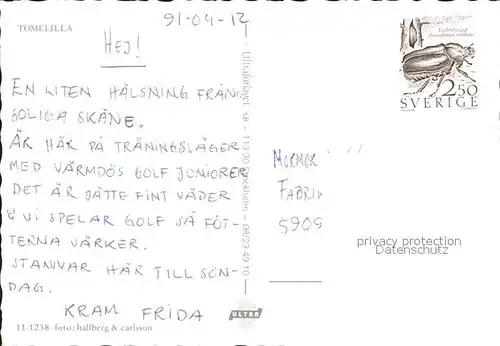 TOMELILLA
91-04-12
HEJ!
EN LITEN HÄLSNING FRÅN
SOLIGA SKÅNE.
ÄR HÄR PÅ TRÄNINGSLÄGER
MED VÄRMDÖS GOLF JUNIORER
DET ÄR JÄTTE FINT VÄDER
& VI SPELAR GOLF SÅ FÖT-
TERNA VÄRKER.
STANNAR HÄR TILL SÖN-
DAG.
KRAM FRIDA
11-1238 foto: hallberg & carlsson
Ultraförlaget AB - 113 30 Stockholm - 08/23 49 10
ULTRA
2.50
SVERIGE
MORMOR
FABRIK
5909
privacy protection
Datenschutz